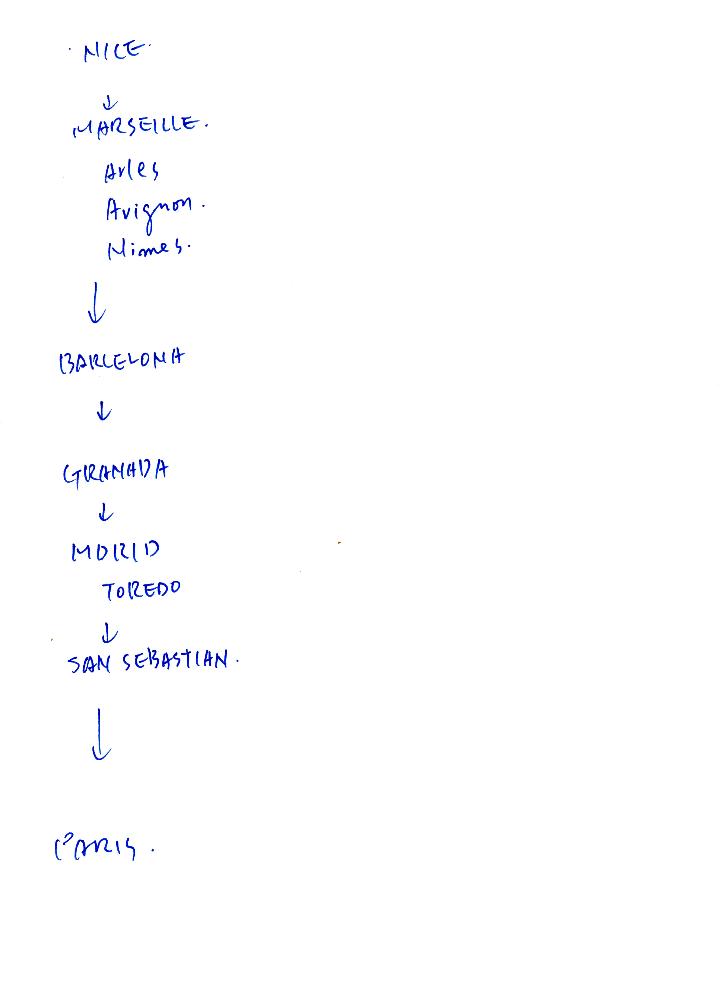 NICE.
↓
MARSEILLE.
Arles
Avignon.
Nimes.
↓
BARCELONA
↓
GRANADA
↓
MDRID
TOREDO
↓
SAN SEBASTIAN.
↓
PARIS.